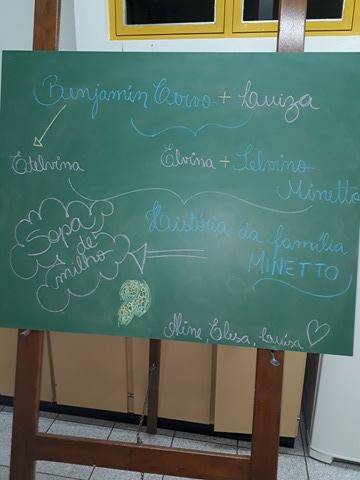 Benjamin Corvo + Luiza
Etelvina
Elvina + Selvino
Minetto
História da família
MINETTO
Sopa
de
milho
Aline, Elisa, Luísa